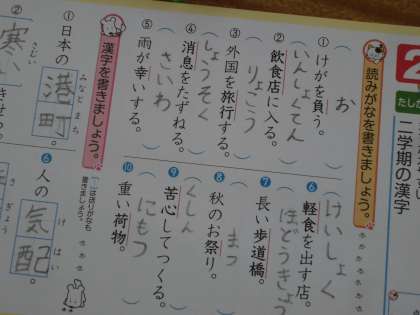 2
たしか
二学期の漢字
読みがなを書きましょう。
①けがを負う。
お
②飲食店に入る。
いんしょくてん
③外国を旅行する。
りょこう
④消息をたずねる。
しょうそく
⑤雨が幸いする。
さいわ
⑥軽食を出す店。
けいしょく
⑦長い歩道橋。
ほどうきょう
⑧秋のお祭り。
まつ
⑨苦心してつくる。
くしん
⑩重い荷物。
にもつ
漢字を書きましょう。
は送りがなも書きましょう。
①日本の港町。
みなとまち
②寒
⑥人の気配。
けはい